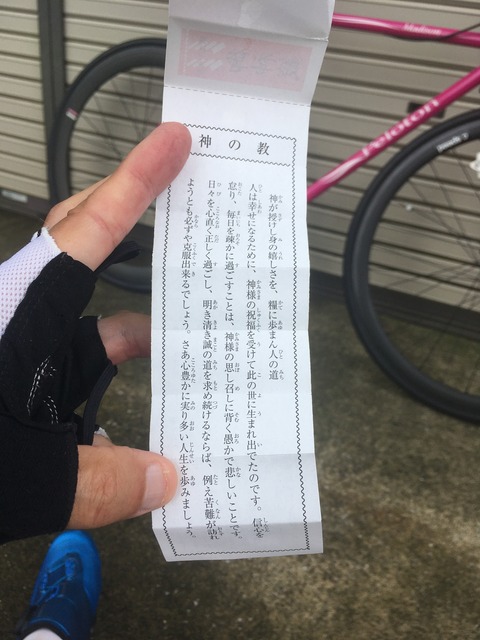 神の教
神が授けし身の嬉しさを、糧に歩まん人の道
人は幸せになるために、神様の祝福を受けて此の世に生まれ出でたのです。信心を
怠り、毎日を疎かに過ごすことは、神様の思し召しに背く愚かで悲しいことです。
日々を心直く正しく過ごし、明き清き誠の道を求め続けるならば、例え苦難が訪れ
ようとも必ずや克服出来るでしょう。さあ心豊かに実り多い人生を歩みましょう。
Madison
Peloton